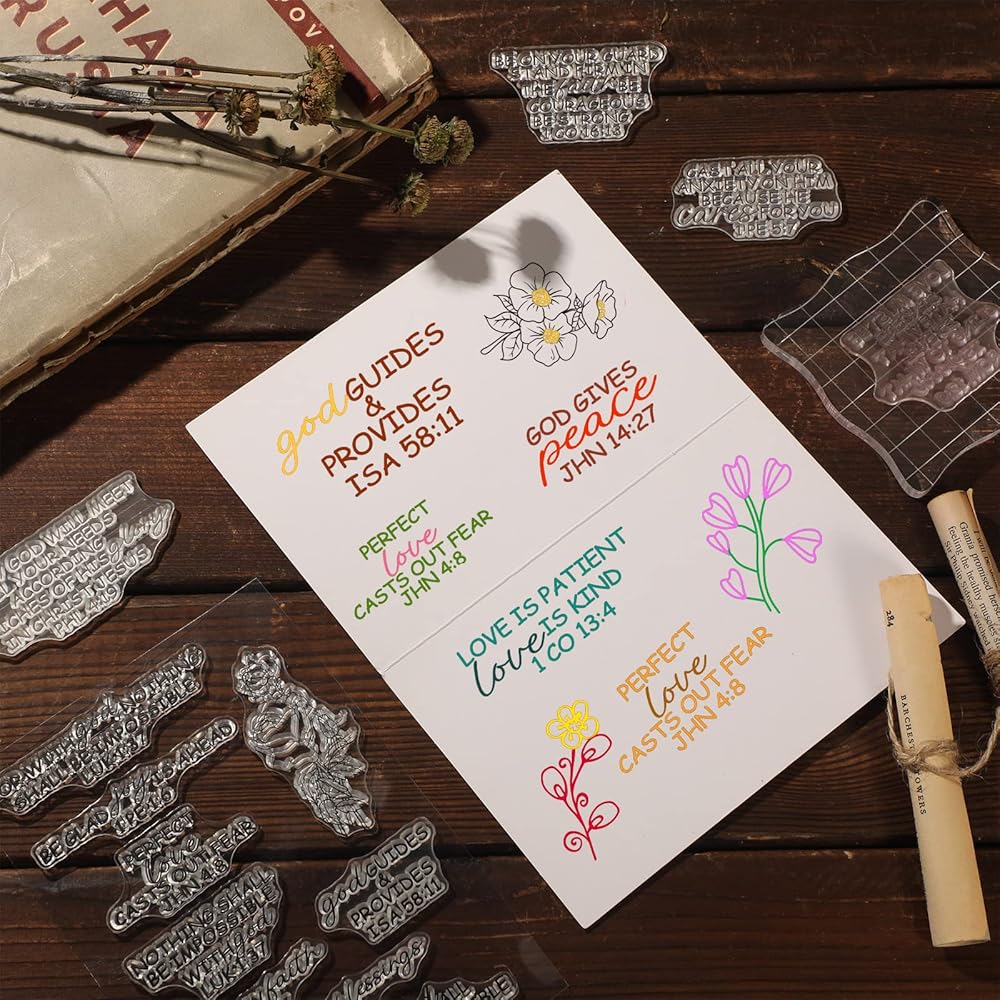 BE ON YOUR GUARD
STAND FIRM IN
THE faith BE
COURAGEOUS
BE STRONG
1 CO 16:13
CAST ALL YOUR
ANXIETY ON HIM
BECAUSE HE
cares FOR YOU
1 PE 5:7
god GUIDES
&
PROVIDES
ISA 58:11
GOD GIVES
peace
JHN 14:27
PERFECT
love
CASTS OUT FEAR
JHN 4:8
LOVE IS PATIENT
love IS KIND
1 CO 13:4
PERFECT
love
CASTS OUT FEAR
JHN 4:8
GOD WILL MEET
YOUR NEEDS
ACCORDING
OF HIS glory
IN CHRIST JESUS
PHL 4:19
FOR WITH God NOTHING
SHALL BE IMPOSSIBLE
LUK 1:37
BE GLAD
AHEAD
PERFECT
love
CASTS OUT FEAR
JHN 4:8
NOTHING SHALL
BE IMPOSSIBLE
WITH God
LUK 1:37
god GUIDES
&
PROVIDES
ISA 58:11
faith
blessings
284
BARCHESTER TOWERS
Grania promised herself
feeling the healthy muscles
Sir Philip Sidney watched